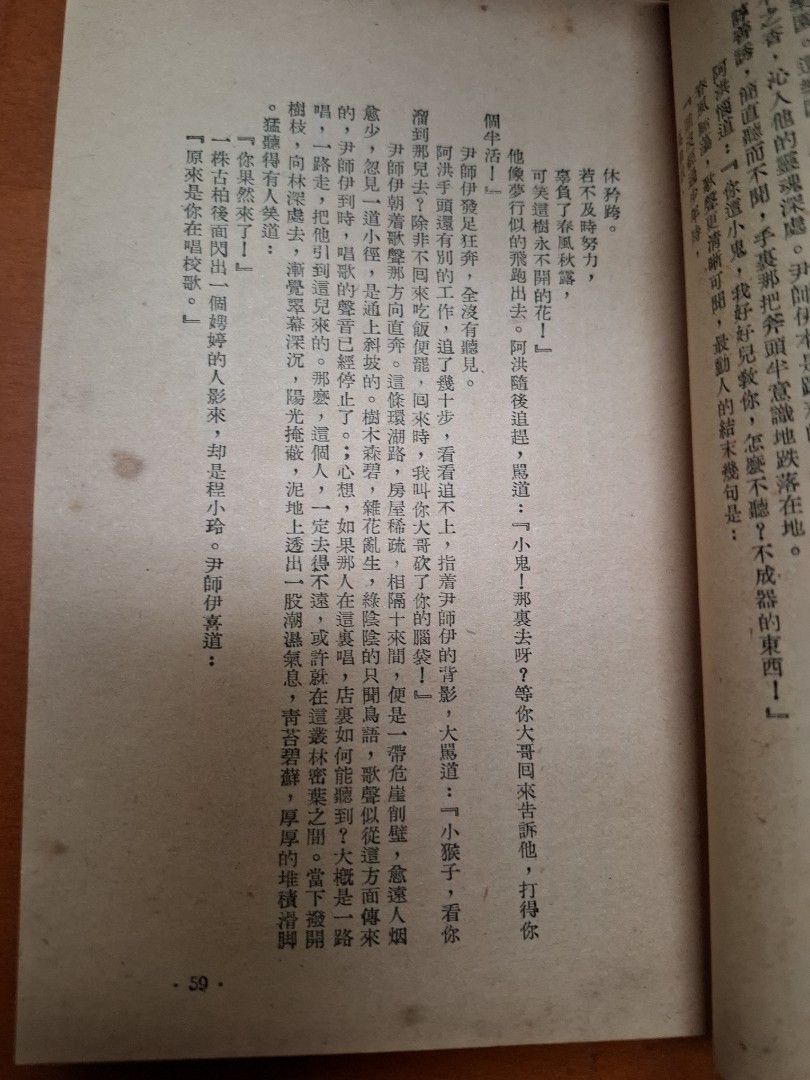 之香，沁人他的靈魂深處。尹師伊本是
簡直聽而不聞，手裏那把斧頭半意識地跌落在地。
阿洪惱道：『你這小鬼，我好好兒教你，怎麼不聽？不成器的東西！』
歌聲更清晰可聞，最動人的結末幾句是：
休矜誇。
若不及時努力，
辜負了春風秋露，
可笑這樹永不開的花！』
他像夢行似的飛跑出去。阿洪隨後追趕，罵道：『小鬼！那裏去呀？等你大哥回來告訴他，打得你
個半活！』
尹師伊發足狂奔，全沒有聽見。
阿洪手頭還有別的工作，追了幾十步，看看追不上，指着尹師伊的背影，大罵道：『小猴子，看你
溜到那兒去？除非不回來吃飯便罷，回來時，我叫你大哥砍了你的腦袋！』
尹師伊朝着歌聲那方向直奔。這條環湖路，房屋稀疏，相隔十來間，便是一帶危崖削壁，愈遠人烟
愈少，忽見一道小徑，是通上斜坡的。樹木森碧，雜花亂生，綠陰陰的只聞鳥語，歌聲似從這方面傳來
的，尹師伊到時，唱歌的聲音已經停止了。；心想，如果那人在這裏唱，店裏如何能聽到？大概是一路
唱，一路走，把他引到這兒來的。那麼，這個人，一定去得不遠，或許就在這叢林密葉之間。當下撥開
樹枝，向林深處去，漸覺翠幕深沉，陽光掩蔽，泥地上透出一股潮濕氣息，青苔碧蘚，厚厚的堆積滑脚
。猛聽得有人笑道：
『你果然來了！』
一株古柏後面閃出一個娉婷的人影來，却是程小玲。尹師伊喜道：
『原來是你在唱校歌。』
· 59 ·